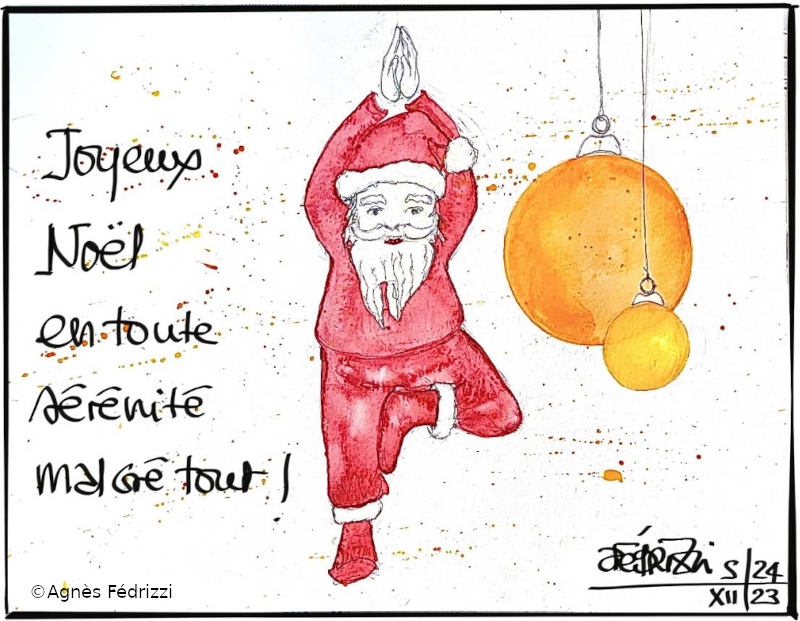 Joyeux
Noël
en toute
sérénité
malgré tout !
©Agnès Fédrizzi
FÉDRIZZI S 24
XII 23